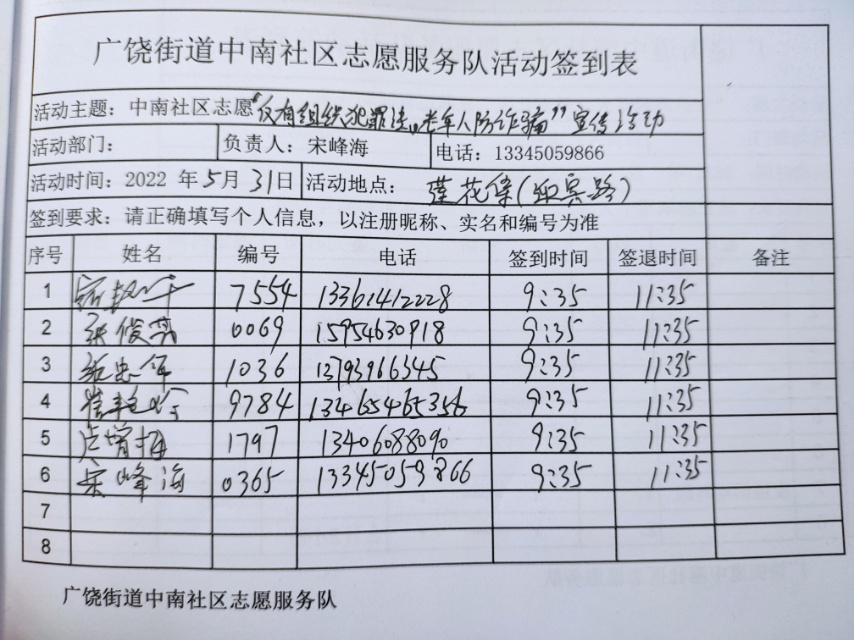 广饶街道中南社区志愿服务队活动签到表
活动主题：中南社区志愿“反有组织犯罪法，老年人防诈骗”宣传活动
活动部门： 负责人：宋峰海 电话：13345059866
活动时间：2022 年 5 月 31 日 活动地点： 莲花保（迎宾路）
签到要求：请正确填写个人信息，以注册昵称、实名和编号为准
序号 姓名 编号 电话 签到时间 签退时间 备注
1 7554 13361412228 9:35 11:35
2 张俊 0069 15954630918 9:35 11:35
3 忠 1036 13793966345 9:35 11:35
4 崔 9784 13465465356 9:35 11:35
5 1797 13406088090 9:35 11:35
6 宋峰海 0365 13345059866 9:35 11:35
7
8
广饶街道中南社区志愿服务队